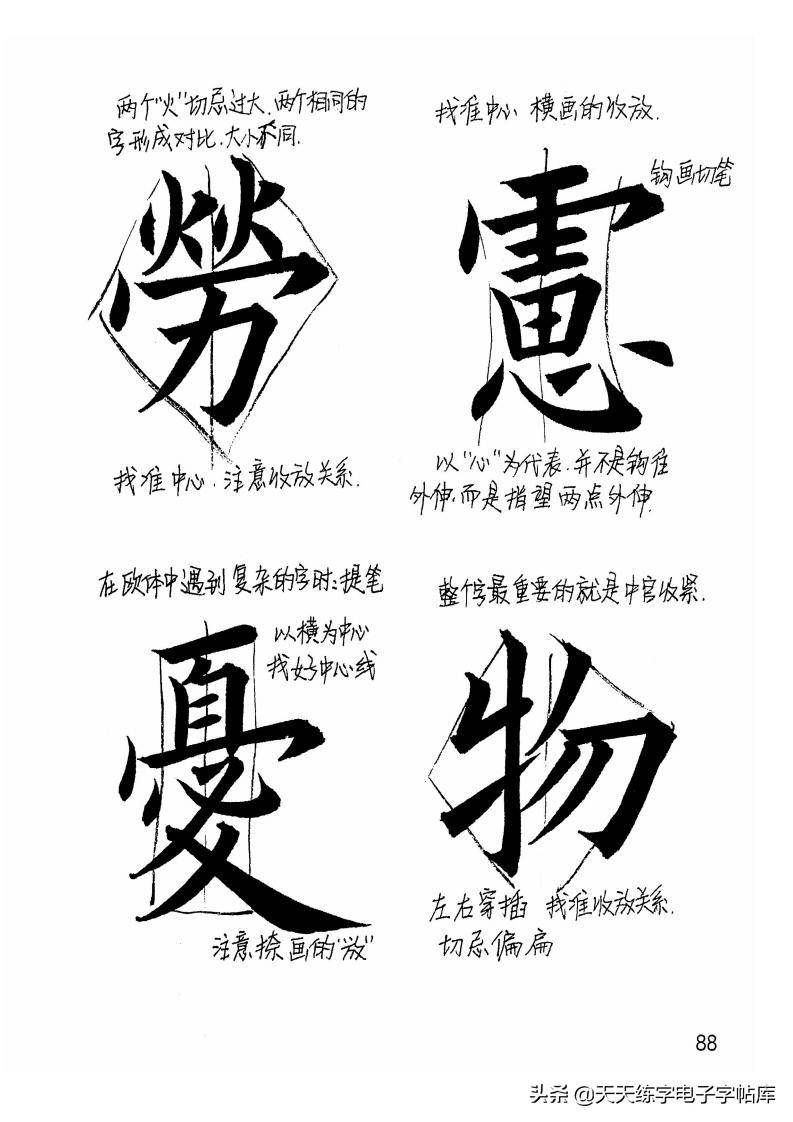 两个"火"切忌过大.两个相同的
字形成对比.大小不同.
勞
找准中心.注意收放关系.
找准中心 横画的收放.
钩画切笔
慮
以"心"为代表.并不是钩往
外伸.而是指望两点外伸.
在欧体中遇到复杂的字时:提笔
以横为中心
找好中心线
憂
注意捺画的"放"
整个字最重要的就是中宫收紧.
物
左右穿插 找准收放关系.
切忌偏扁
88
头条 @天天练字电子字帖库